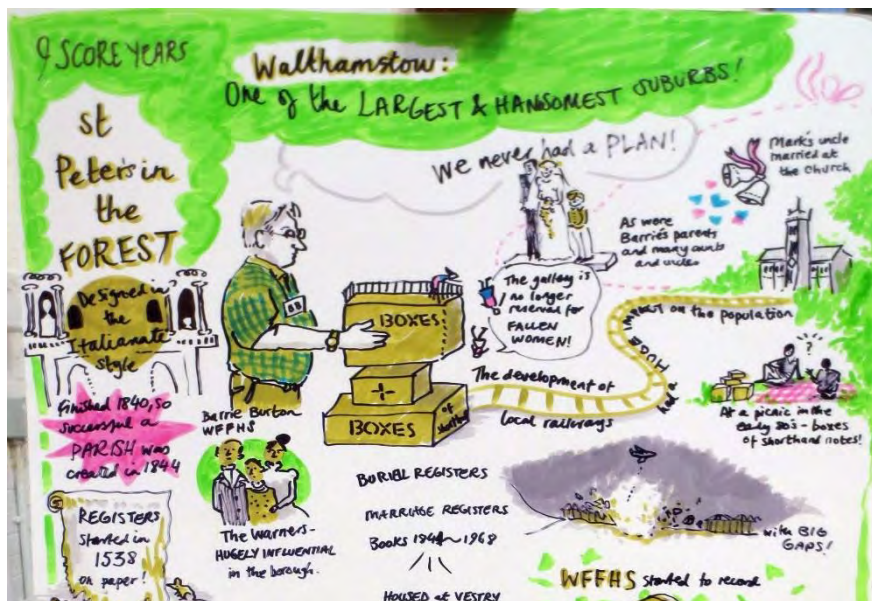 9 SCORE YEARS
Walthamstow:
One of the LARGEST & HANDSOMEST SUBURBS!
st
Peter's in
the
FOREST
Designed in
the
Italianate
style
Finished 1840, so
successful a
PARISH was
created in 1844
REGISTERS
started in
1538
on paper!
We never had a PLAN!
BB
BOXES
+
BOXES
of shorthand
Barrie Burton
WFFHS
The Warners-
HUGELY INFLUENTIAL
in the borough.
The gallery is
no longer
reserved for
FALLEN
WOMEN!
Mark's uncle
married at
the church
As were
Barrie's parents
and many aunts
and uncles
The development of
local railways
had a
HUGE IMPACT on the population
?
At a picnic in the
early 80's - boxes
of shorthand notes!
BURIAL REGISTERS
MARRIAGE REGISTERS
Books 1844 1968
HOUSED at VESTRY
with BIG
GAPS!
WFFHS started to record